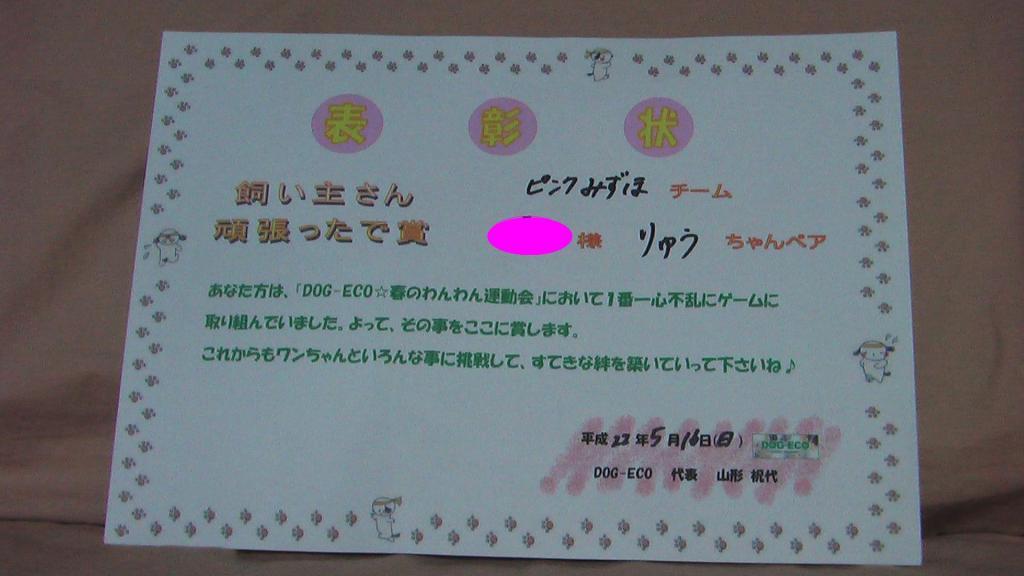 表彰状
飼い主さん
頑張ったで賞
ピンクみずほ チーム
様 りゅう ちゃんペア
あなた方は、「DOG-ECO☆春のわんわん運動会」において1番一心不乱にゲームに
取り組んでいました。よって、その事をここに賞します。
これからもワンちゃんといろんな事に挑戦して、すてきな絆を築いていって下さいね♪
平成22年5月16日(日) DOG-ECO
DOG-ECO 代表 山形 祝代